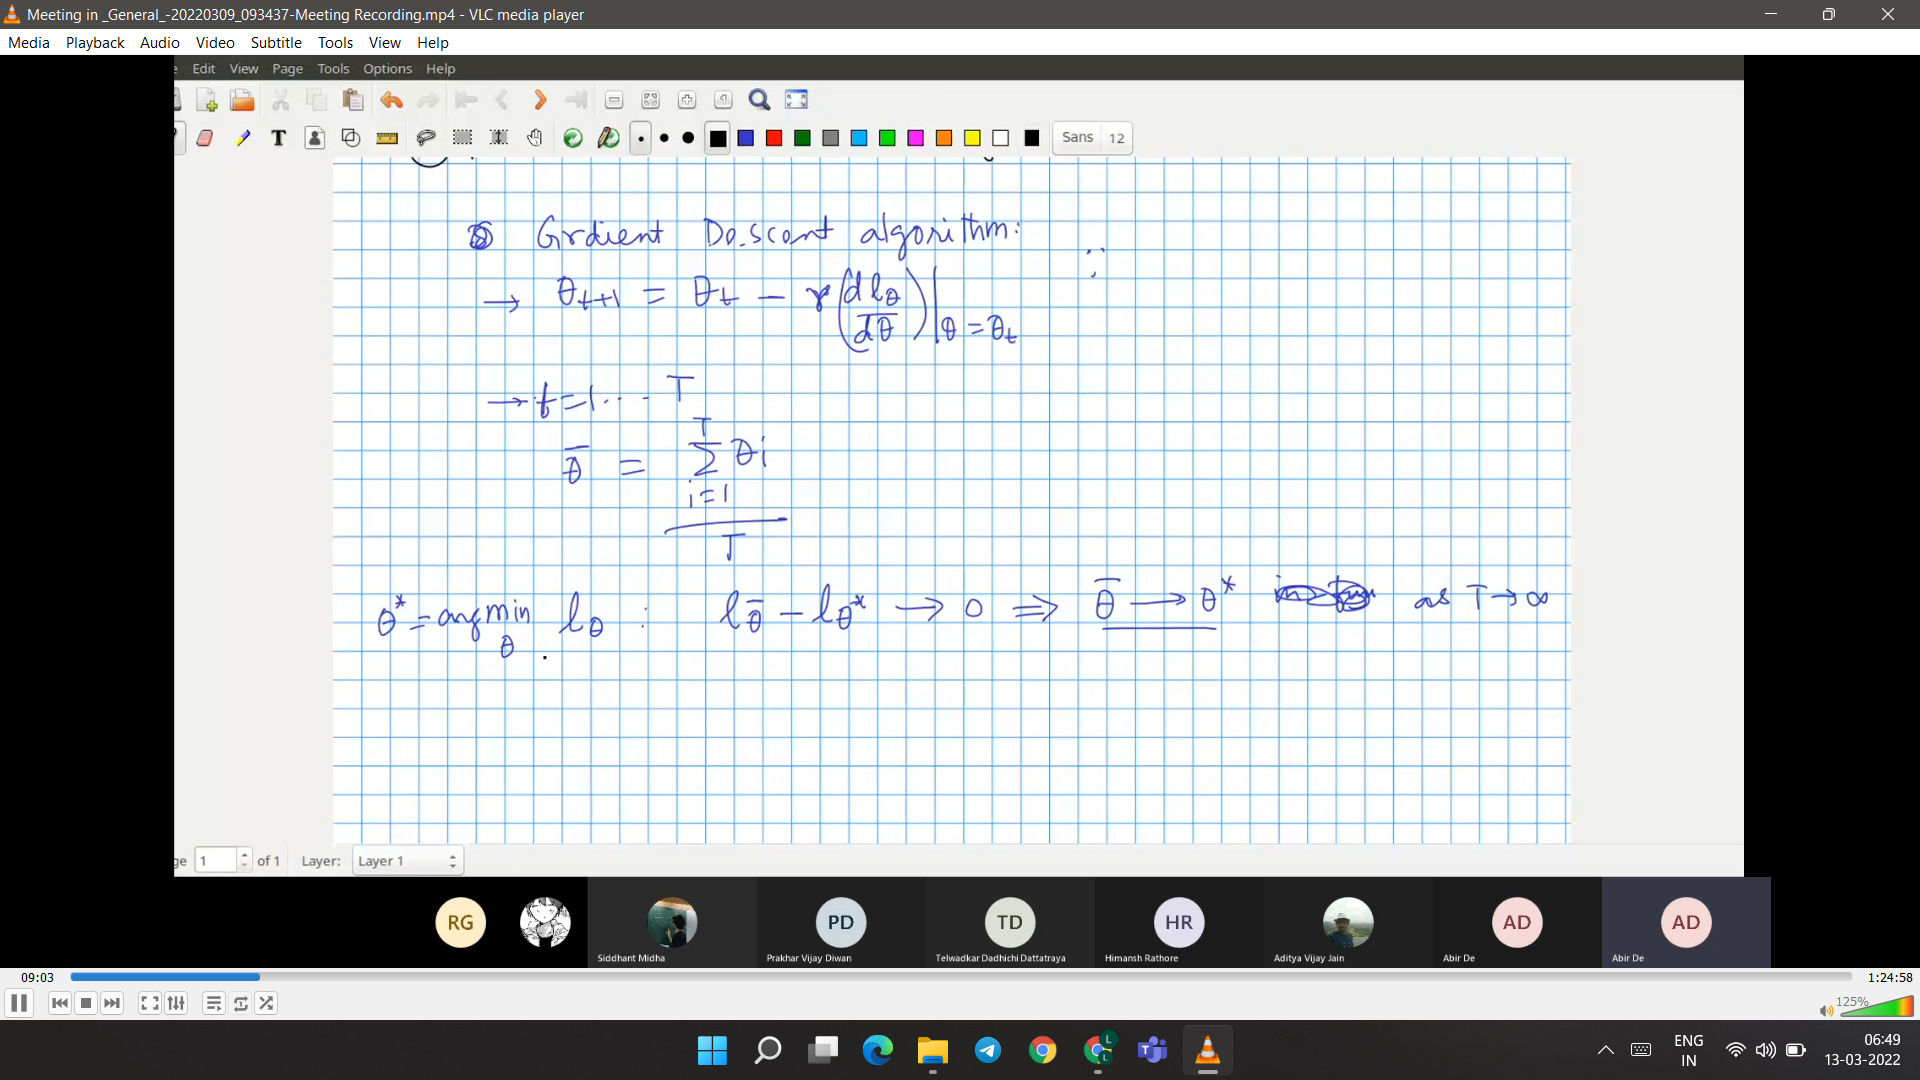 Meeting in _General_-20220309_093437-Meeting Recording.mp4 - VLC media player
Media Playback Audio Video Subtitle Tools View Help
Edit View Page Tools Options Help
Sans 12
Grdient Descent algorithm:
→ θ_{t+1} = θ_t - γ (dl_θ / dθ) |_{θ = θ_t}
→ t=1 ... T
θ̄ = Σ_{i=1}^{T} θ_i / T
θ* = argmin_θ l_θ : l_θ̄ - l_θ* → 0 ⇒ θ̄ → θ* as T→∞
ge 1 of 1 Layer: Layer 1
RG PD TD HR AD AD
Siddhant Midha Prakhar Vijay Diwan Telwadkar Dadhichi Dattatraya Himansh Rathore Aditya Vijay Jain Abir De Abir De
09:03 1:24:58
125%
L L
ENG 06:49
IN 13-03-2022